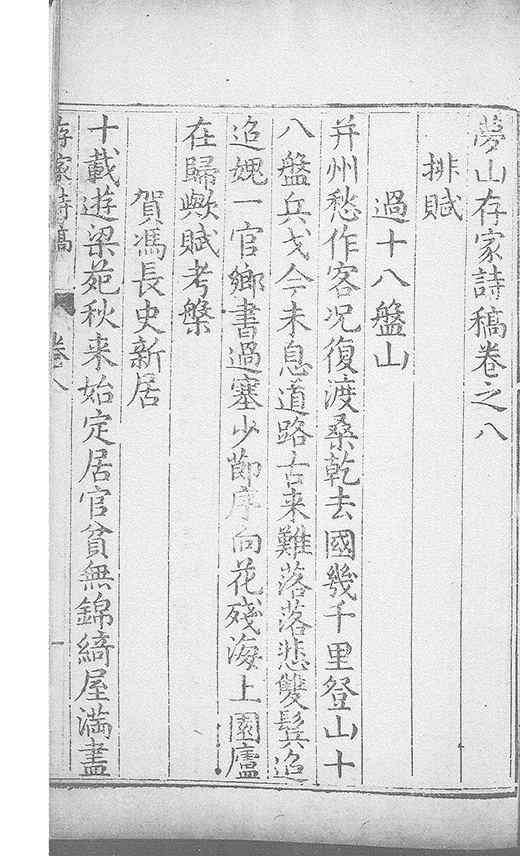 夢山存家詩稿卷之八
排賦
過十八盤山
并州愁作客况復渡桑乾去國幾千里登山十
八盤兵戈今未息道路古来難落落悲雙鬂迢
迢媿一官鄉書過塞少節序向花殘海上園廬
在歸歟賦考槃
賀馮長史新居
十載遊梁苑秋来始定居官貧無錦綺屋滿盡
存家詩稿 卷八 一